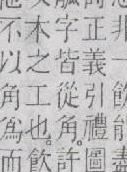 非一飲能盡
正義引禮圖
字皆從角。許
木之工也。飲
不以角為而